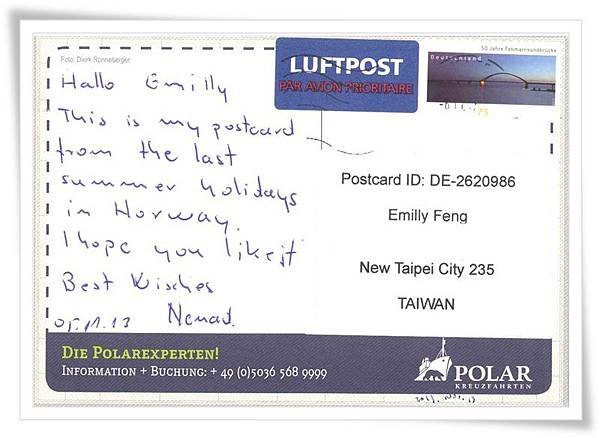 Foto: Dierk Ronneberger
Hallo Emilly
This is my postcard
from the last
summer holidays
in Norway.
I hope you like it
Best Wisches
05.11.13 Nenad.
LUFTPOST
PAR AVION PRIORITAIRE
50 Jahre Fehmarnsundbrücke
Deutschland
75
Postcard ID: DE-2620986
Emilly Feng
New Taipei City 235
TAIWAN
DIE POLAREXPERTEN!
INFORMATION + BUCHUNG: + 49 (0)5036 568 9999
POLAR
KREUZFAHRTEN